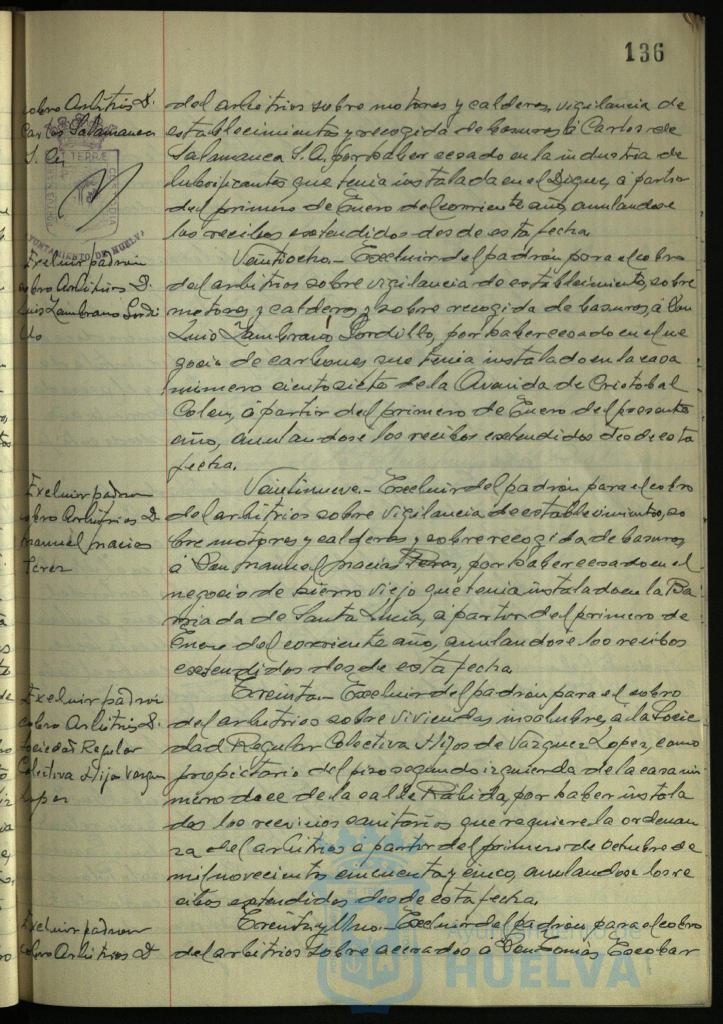 136
cobro Arbitrios D.
Carlos Salamanca
S. A.
del arbitrios sobre motores y calderas, vigilancia de
establecimientos y recogida de basuras, á Carlos de
Salamanca S. A. por haber cesado en la industria de
lubrificantes que tenia instalada en el Dique, á partir
del primero de Enero del corriente año, anulandose
los recibos extendidos desde esta fecha.
AYUNTAMIENTO DE HUELVA
Excluir padron
cobro Arbitrios D.
Luis Zambrano Gordi
llo
Veintiocho.- Excluir del padrón para el cobro
del arbitrios sobre vigilancia de establecimientos, sobre
motores y calderas y sobre recogida de basuras, á Don
Luis Zambrano Gordillo, por haber cesado en el ne
gocio de carbones que tenia instalado en la casa
número ciento siete de la Avenida de Cristobal
Colon, á partir del primero de Enero del presente
año, anulandose los recibos extendidos desde esta
fecha.
Excluir padron
cobro Arbitrios D.
Manuel Macias
Perez
Veintinueve.- Excluir del padrón para el cobro
del arbitrios sobre vigilancia de establecimientos, so
bre motores y calderas y sobre recogida de basuras
á Don Manuel Macias Perez, por haber cesado en el
negocio de hierro viejo que tenia instalado en la Ba
rriada de Santa Lucia, á partir del primero de
Enero del corriente año, anulandose los recibos
extendidos desde esta fecha.
Excluir padron
cobro Arbitrios D.
Sociedad Regular
Colectiva Hijos Vazquez
Lopez
Treinta.- Excluir del padrón para el cobro
del arbitrios sobre viviendas insalubres, á la Socie
dad Regular Colectiva Hijos de Vazquez Lopez, como
propietario del piso segundo izquierda de la casa nú
mero doce de la calle Rábida, por haber instala
dos los servicios sanitarios que requiere la ordenan
za del arbitrios á partir del primero de Octubre de
mil novecientos cincuenta y cinco, anulandose los re
cibos extendidos desde esta fecha.
Excluir padron
cobro Arbitrios D.
Treinta y Uno.- Excluir del padrón para el cobro
del arbitrios sobre acerados á Don Tomás Escobar
HUELVA